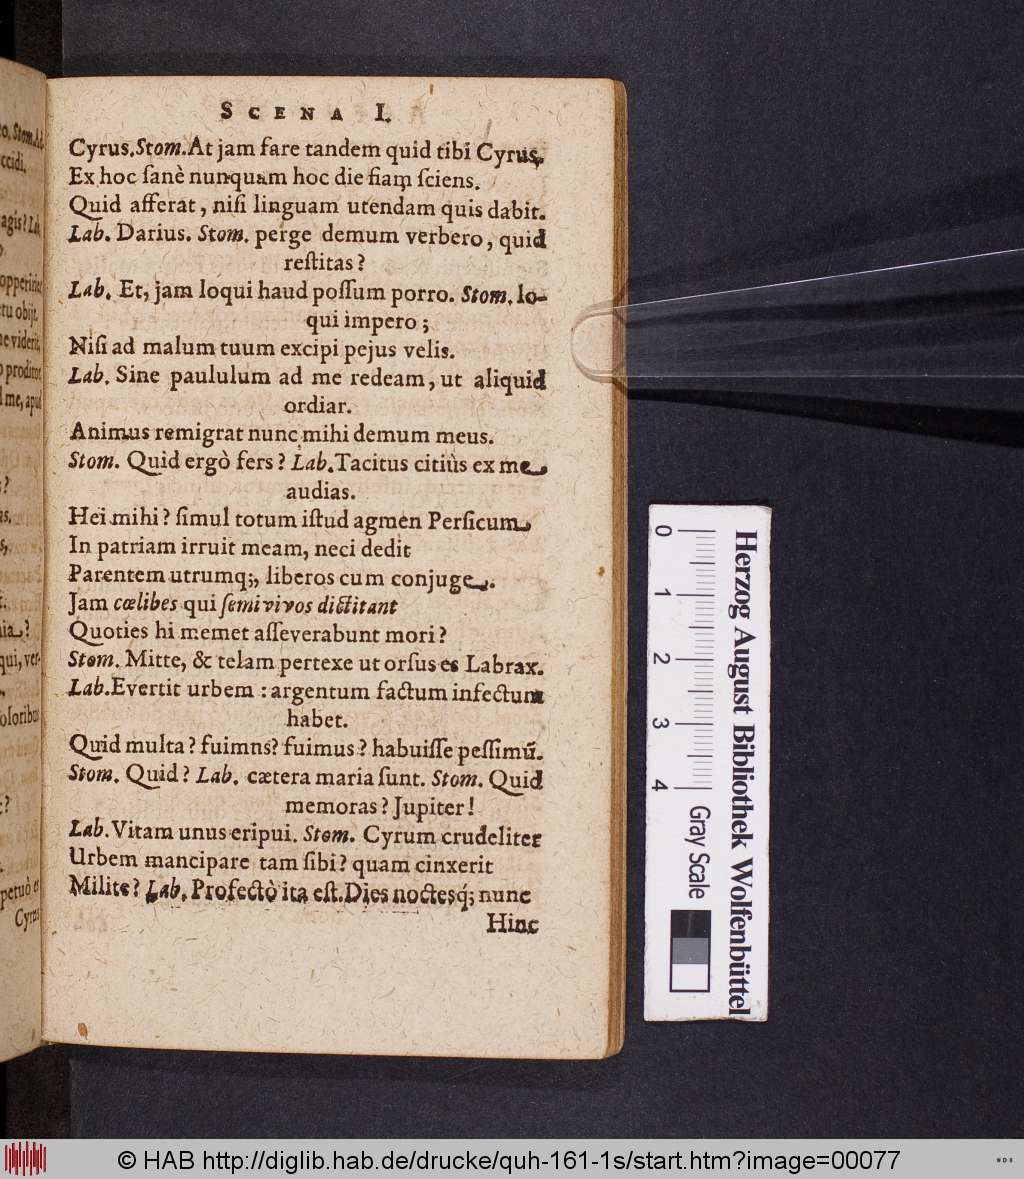 SCENA I.
Cyrus. Stom. At jam fare tandem quid tibi Cyrus,
Ex hoc ſanè nunquam hoc die fiam ſciens.
Quid afferat, niſi linguam utendam quis dabit.
Lab. Darius. Stom. perge demum verbero, quid
reſtitas?
Lab. Et, jam loqui haud poſſum porro. Stom. lo-
qui impero;
Niſi ad malum tuum excipi pejus velis.
Lab. Sine paululum ad me redeam, ut aliquid
ordiar.
Animus remigrat nunc mihi demum meus.
Stom. Quid ergò fers? Lab. Tacitus citiùs ex me
audias.
Hei mihi? ſimul totum iſtud agmen Perſicum
In patriam irruit meam, neci dedit
Parentem utrumq;, liberos cum conjuge.
Jam cœlibes qui ſemivivos dictitant
Quoties hi memet aſſeverabunt mori?
Stom. Mitte, & telam pertexe ut orſus es Labrax.
Lab. Evertit urbem: argentum factum infectum
habet.
Quid multa? fuimns? fuimus? habuiſſe peſſimũ.
Stom. Quid? Lab. cætera maria ſunt. Stom. Quid
memoras? Jupiter!
Lab. Vitam unus eripui. Stom. Cyrum crudeliter
Urbem mancipare tam ſibi? quam cinxerit
Milite? Lab. Profectò ita eſt. Dies noctesq; nunc
Hinc
o. Stom. Ad
ccidi.
agis? Lab.
opperirier
tu obijt.
ne viderit,
o proditor
d me, apud
?
as,
s,
nia?
qui, ver-
oloribus
?
petuò et
Cyrus
0 1 2 3 4
Gray Scale
Herzog August Bibliothek Wolfenbüttel
© HAB http://diglib.hab.de/drucke/quh-161-1s/start.htm?image=00077